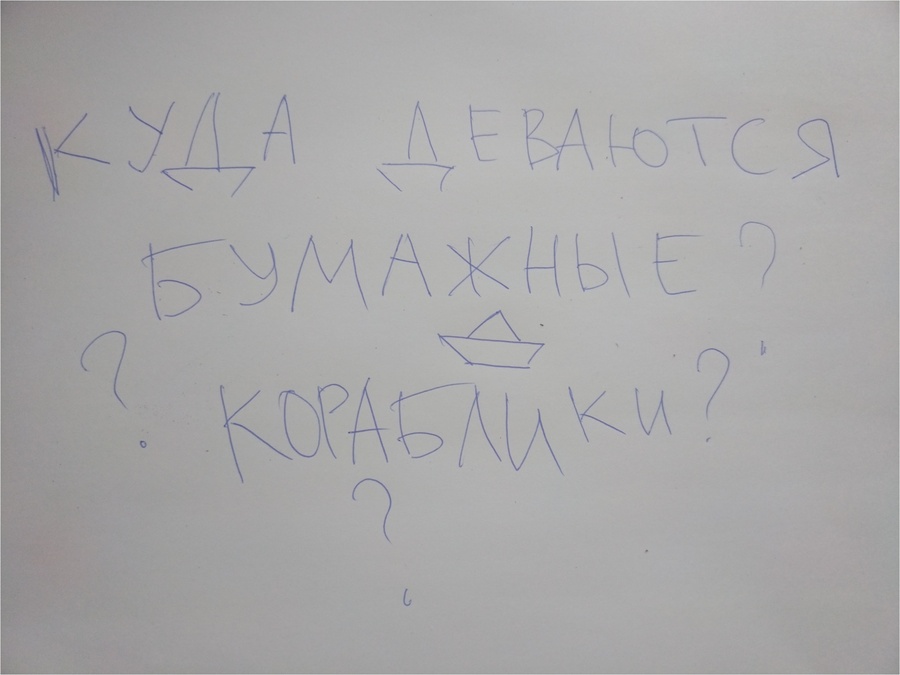 КУДА ДЕВАЮТСЯ
БУМАЖНЫЕ ?
? КОРАБЛИКИ ?
?